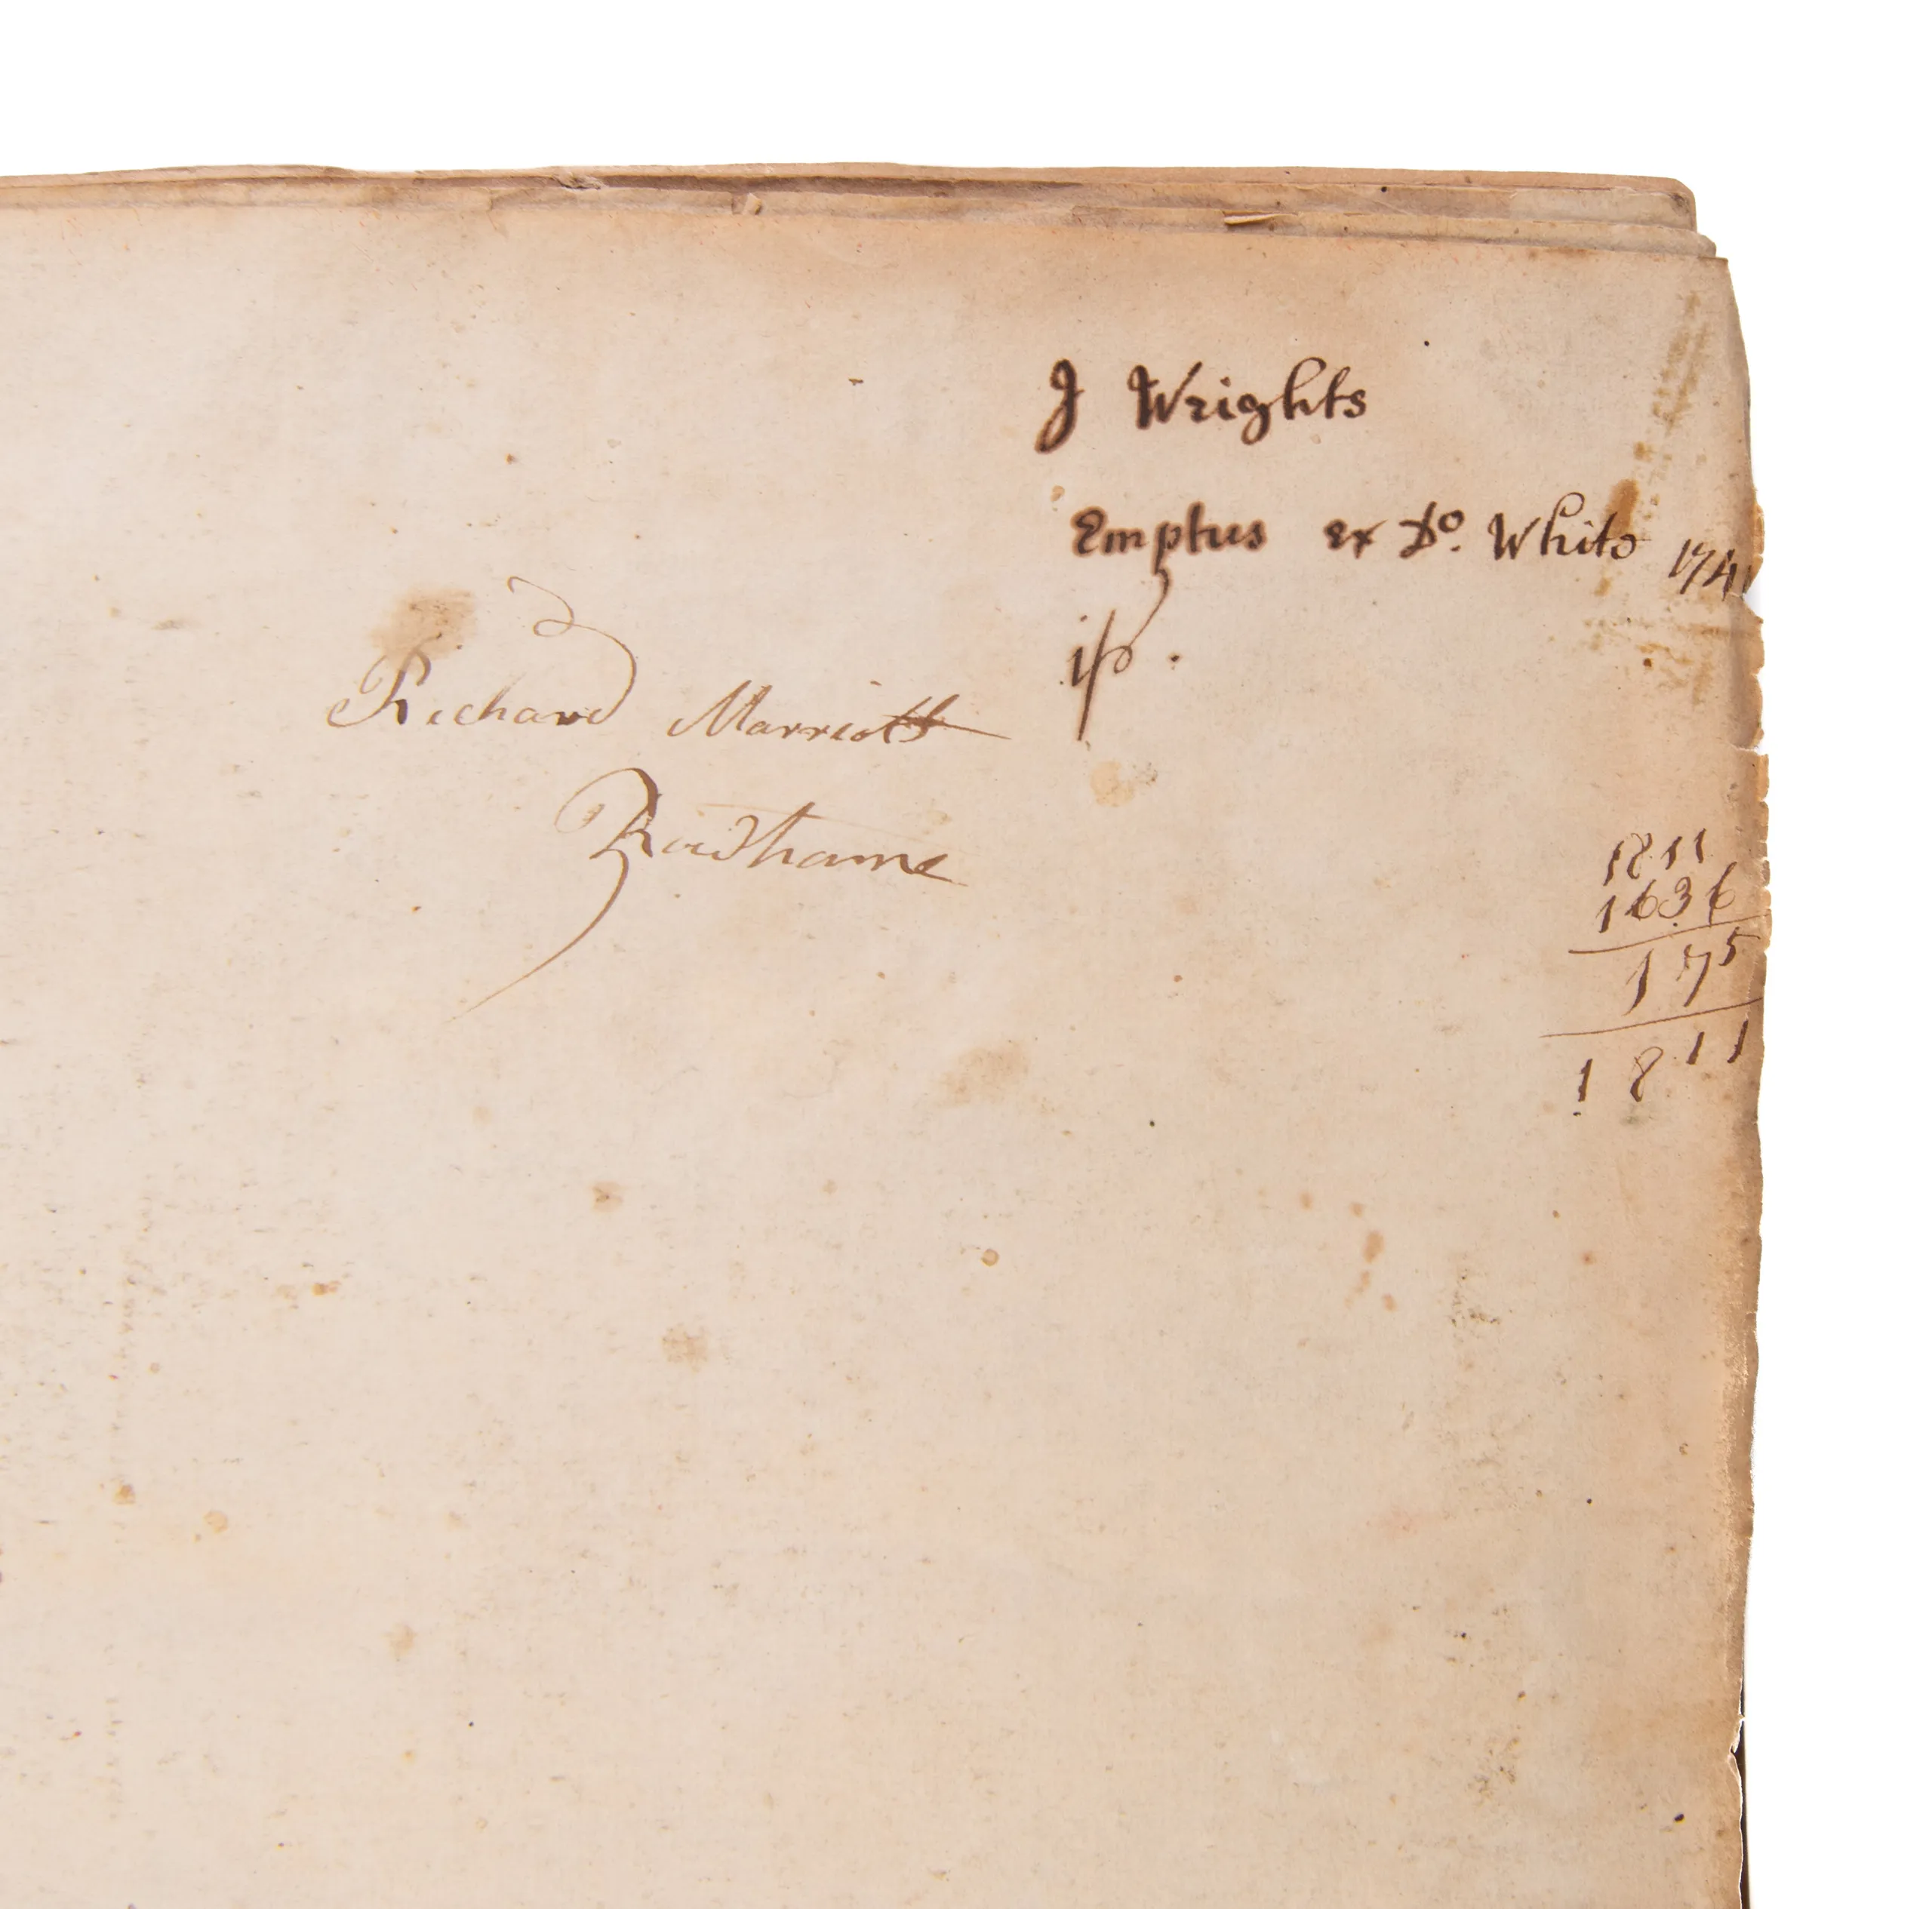 J Wrights
Emptus ex Do. White 174
Richard Marriott
1811
1636
175
1811